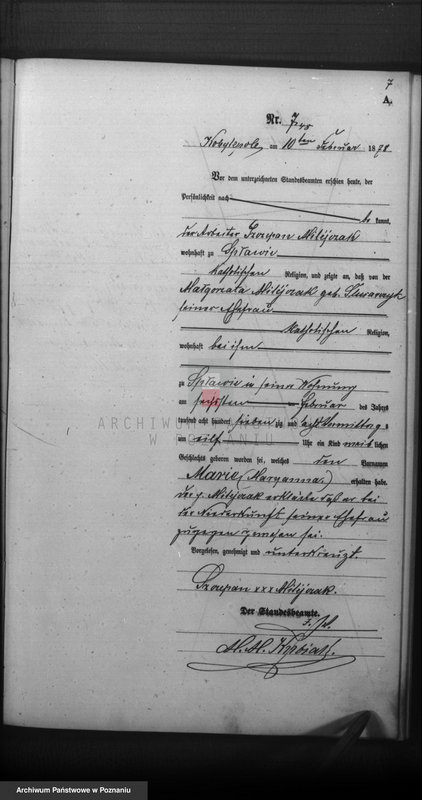 7
A.
Nr. 7
Kobylepole, am 10ten Februar 1878
Vor dem unterzeichneten Standesbeamten erschien heute, der
Persönlichkeit nach
be kannt,
der Arbeiter Szczepan
wohnhaft zu Spławie
katholischen Religion, und zeigte an, daß von der
Małgorzata geb.
seiner Ehefrau
katholischen Religion,
wohnhaft bei ihm
zu Spławie in seiner Wohnung
am sechsten Februar des Jahres
tausend acht hundert sieben zig und acht Vormittags
um elf Uhr ein Kind weib lichen
Geschlechts geboren worden sei, welches den Vornamen
Marie (Maryanna) erhalten habe.
Der p. erklärte daß er bei
der Niederkunft seiner Ehefrau
zugegen gewesen sei.
Vorgelesen, genehmigt und unterkreuzt.
Szczepan xxx
Der Standesbeamte.
ARCHIWUM
W POZNANIU
Archiwum Państwowe w Poznaniu